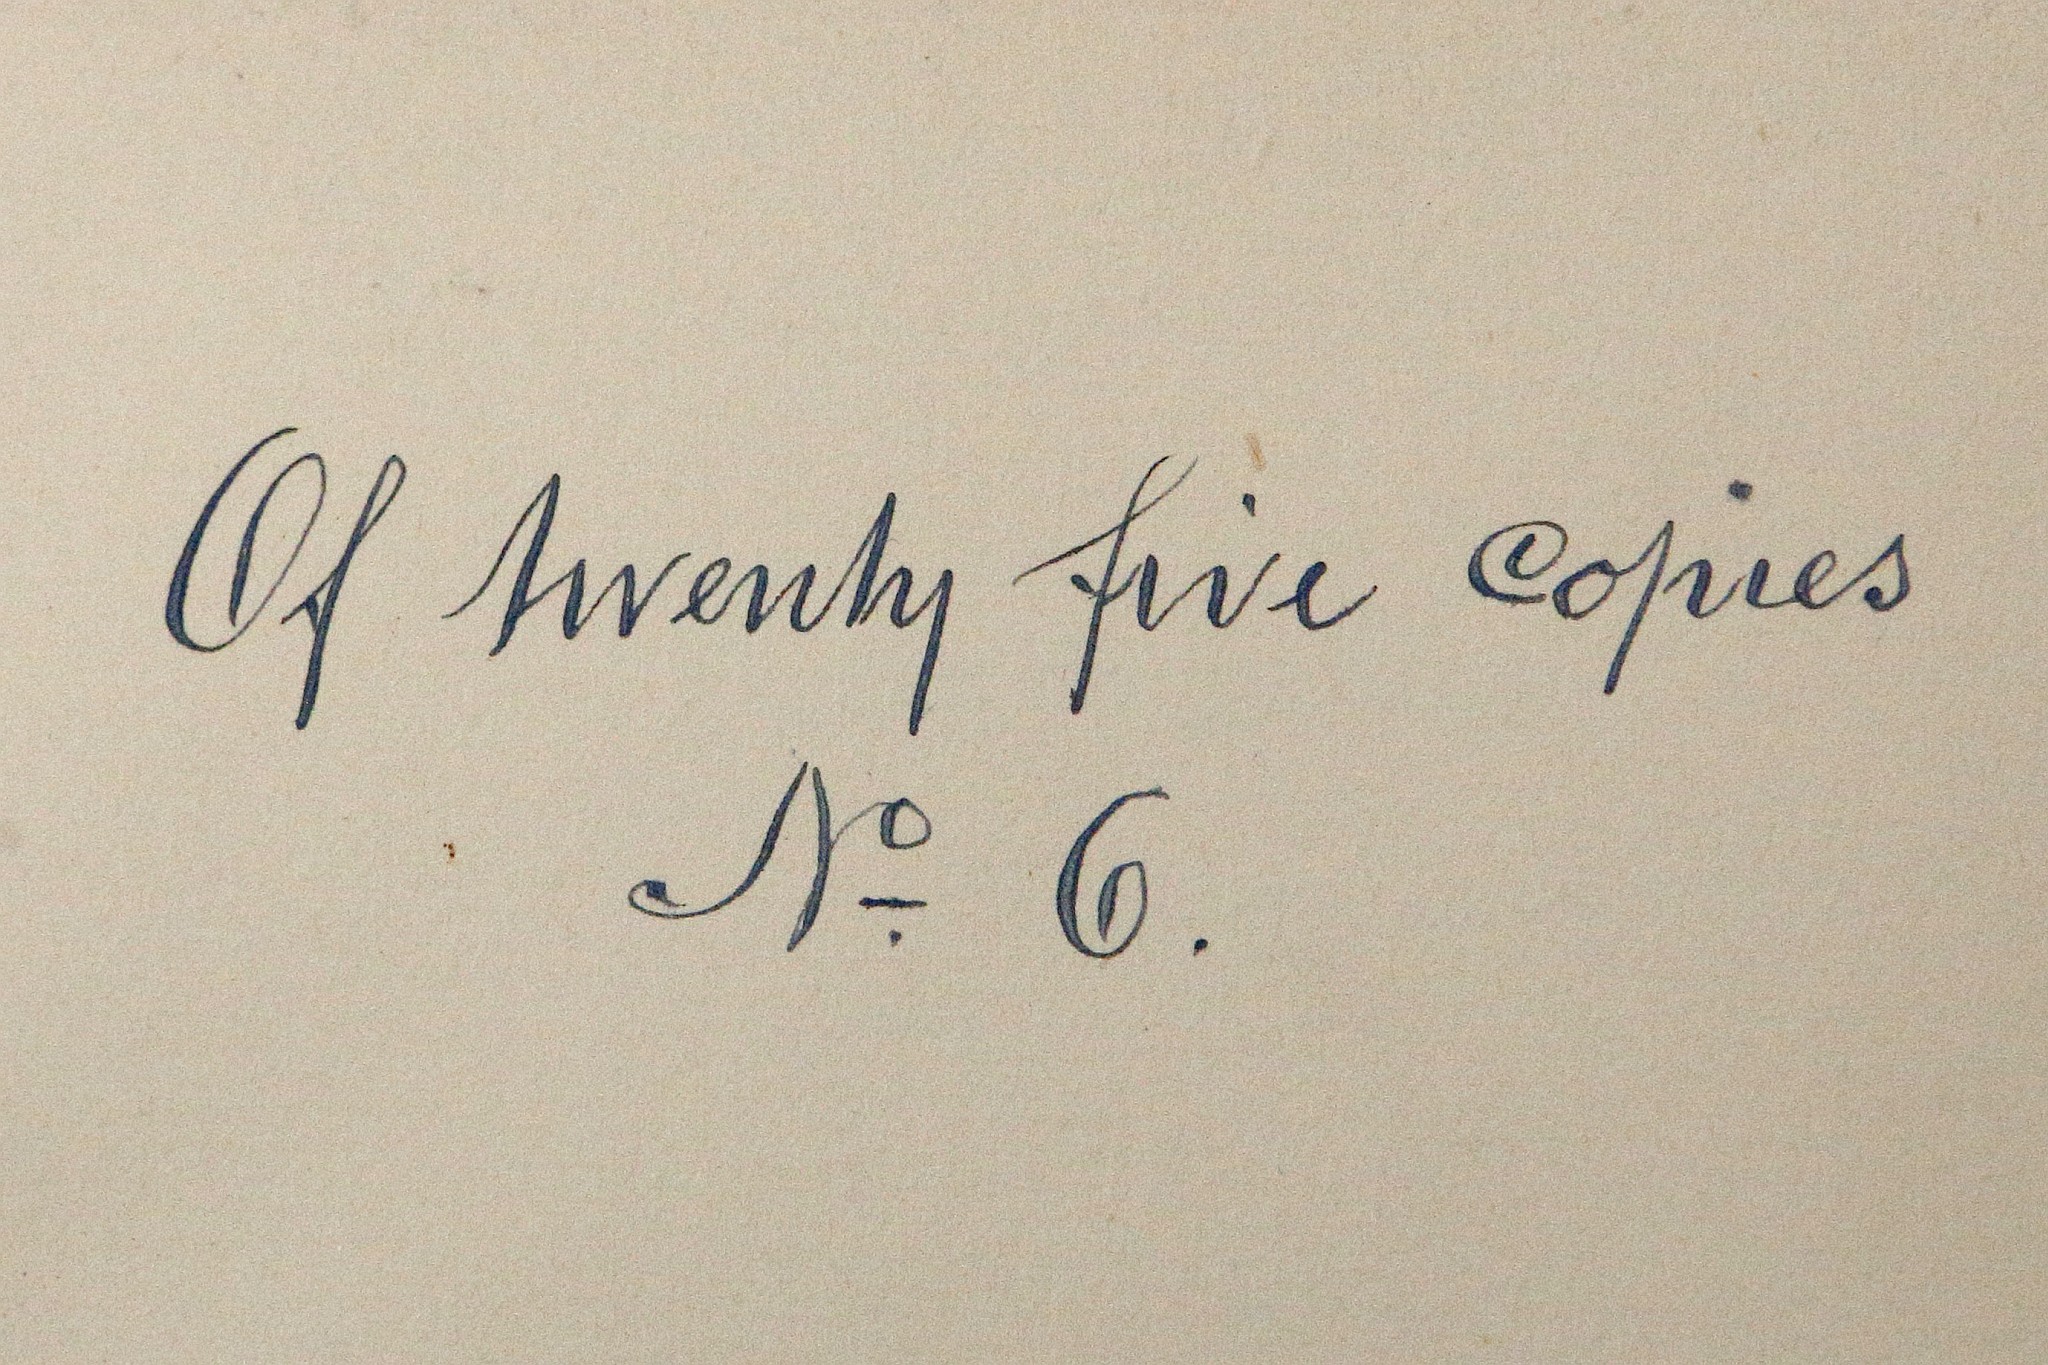 Of twenty five copies
Nº. 6.